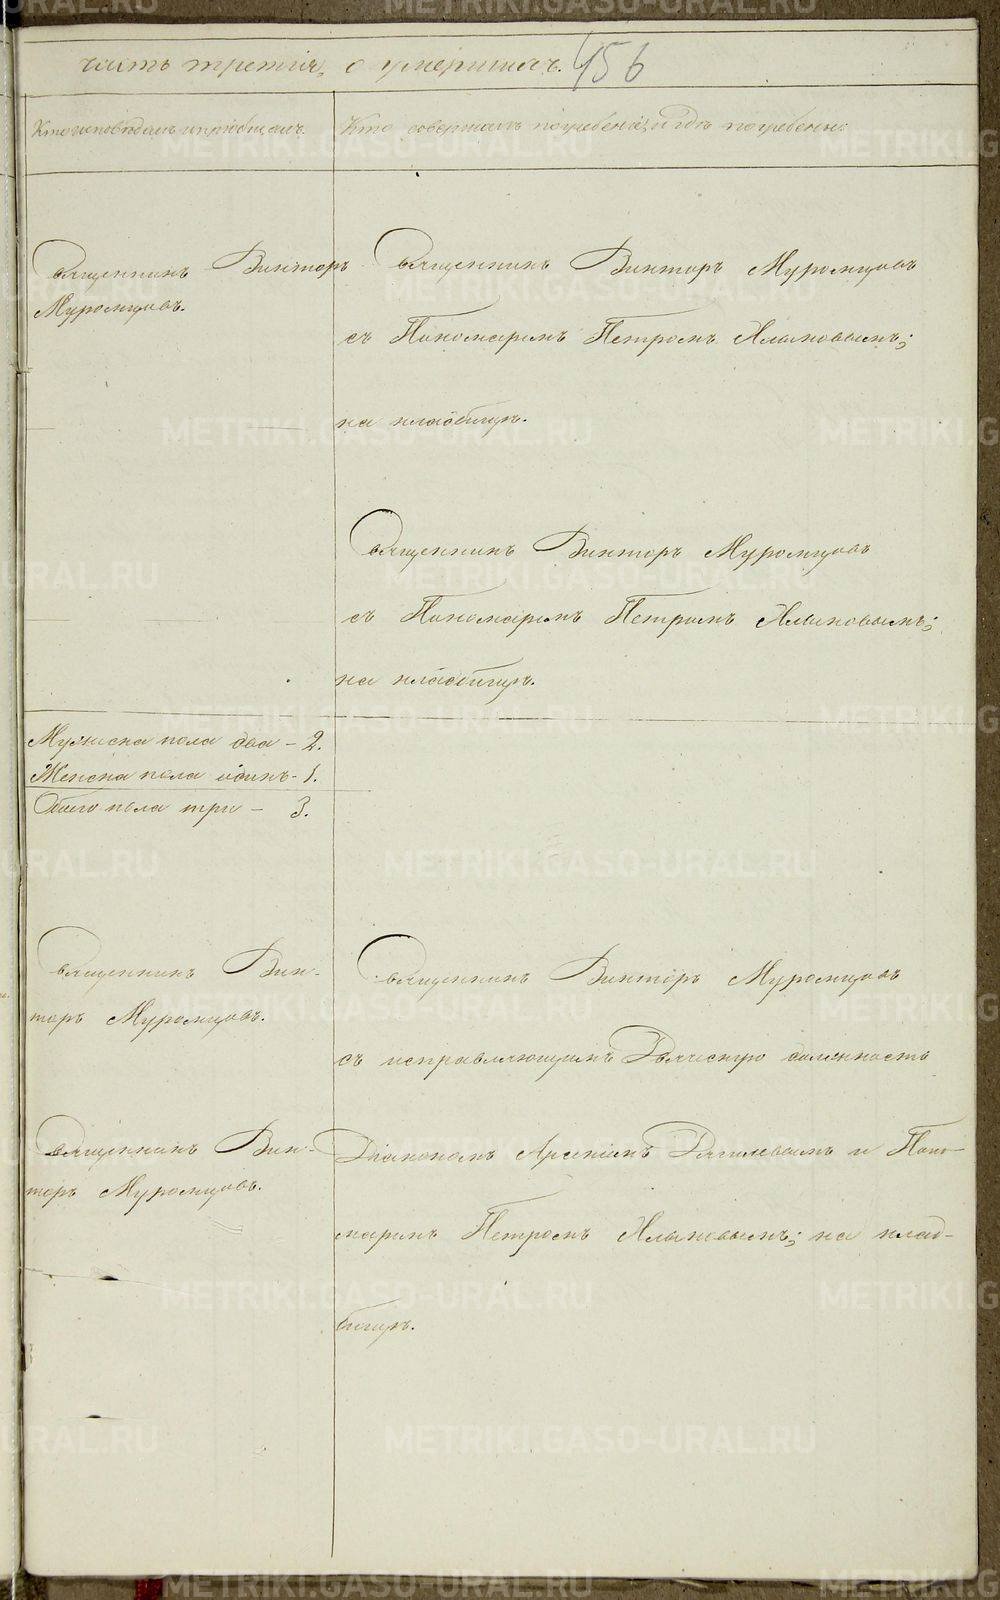 часть третія, о умершихъ. 456
Кто исповѣдалъ и пріобщалъ.
Кто совершалъ погребеніе, и гдѣ погребены.
Священникъ Викторъ
Муромцовъ.
Священникъ Викторъ Муромцовъ
съ Пономаремъ Петромъ Хлыновымъ;
на кладбищѣ.
Священникъ Викторъ Муромцовъ
съ Пономаремъ Петромъ Хлыновымъ;
на кладбищѣ.
Мужеска пола два – 2.
Женска пола одинъ – 1.
Обоего пола три – 3.
Священникъ Вик-
торъ Муромцовъ.
Священникъ Викторъ Муромцовъ
съ исправляющимъ Дьяческую должность
Священникъ Вик-
торъ Муромцовъ.
Діакономъ Арсеніемъ и Поно-
маремъ Петромъ Хлыновымъ; на клад-
бищѣ.
METRIKI.GASO-URAL.RU